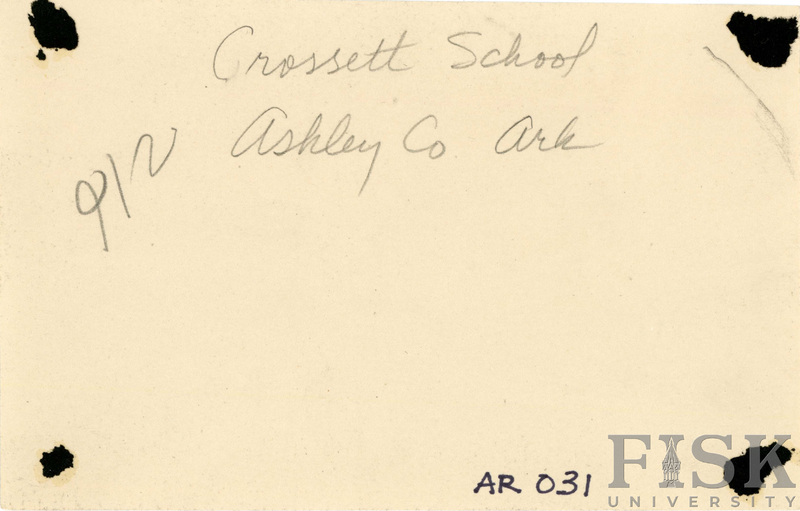 Crossett School
Ashley Co Ark
9/2
AR 031
FISK
UNIVERSITY